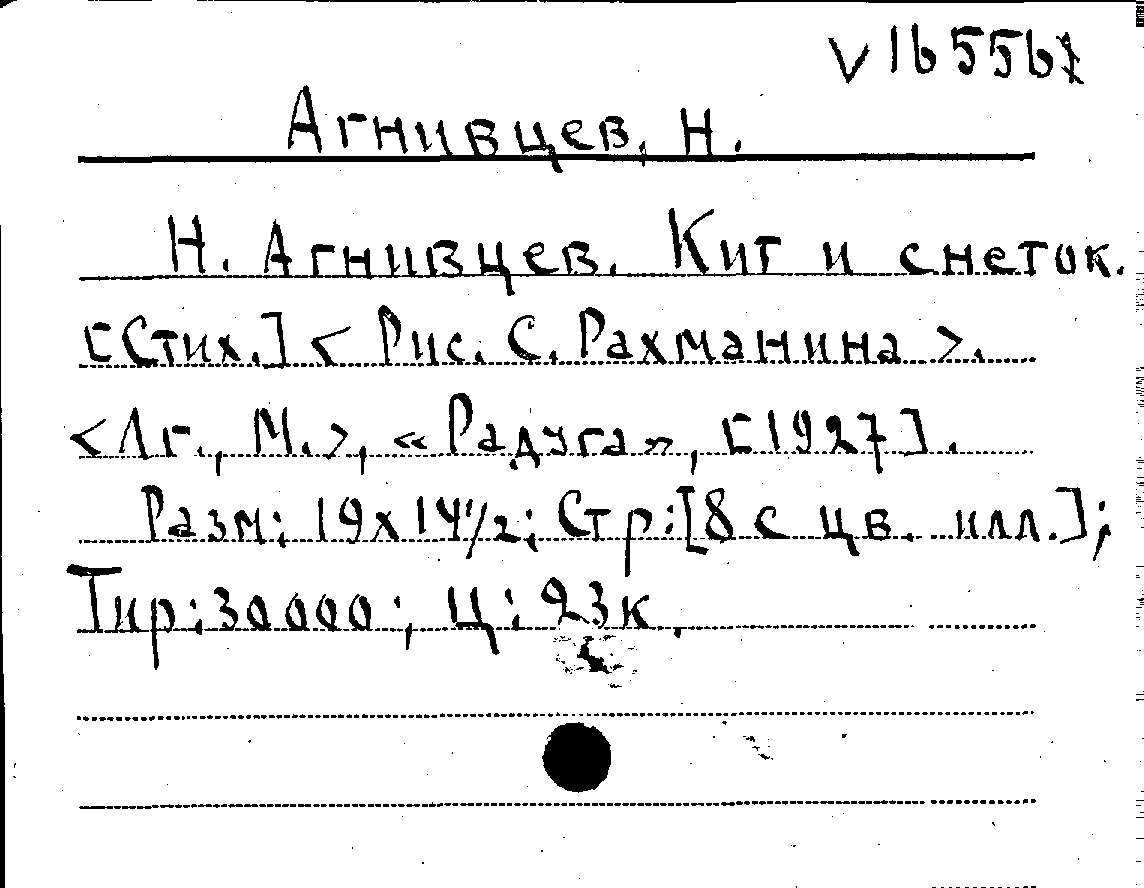 V 165567
Агнивцев, Н.
Н. Агнивцев. Кит и снеток.
[Стих.] < Рис. С. Рахманина >.
<Лг., М.>, «Радуга», [1927].
Разм: 19х14½; Стр:[8 с цв. илл.];
Тир:30000; Ц: 23к.